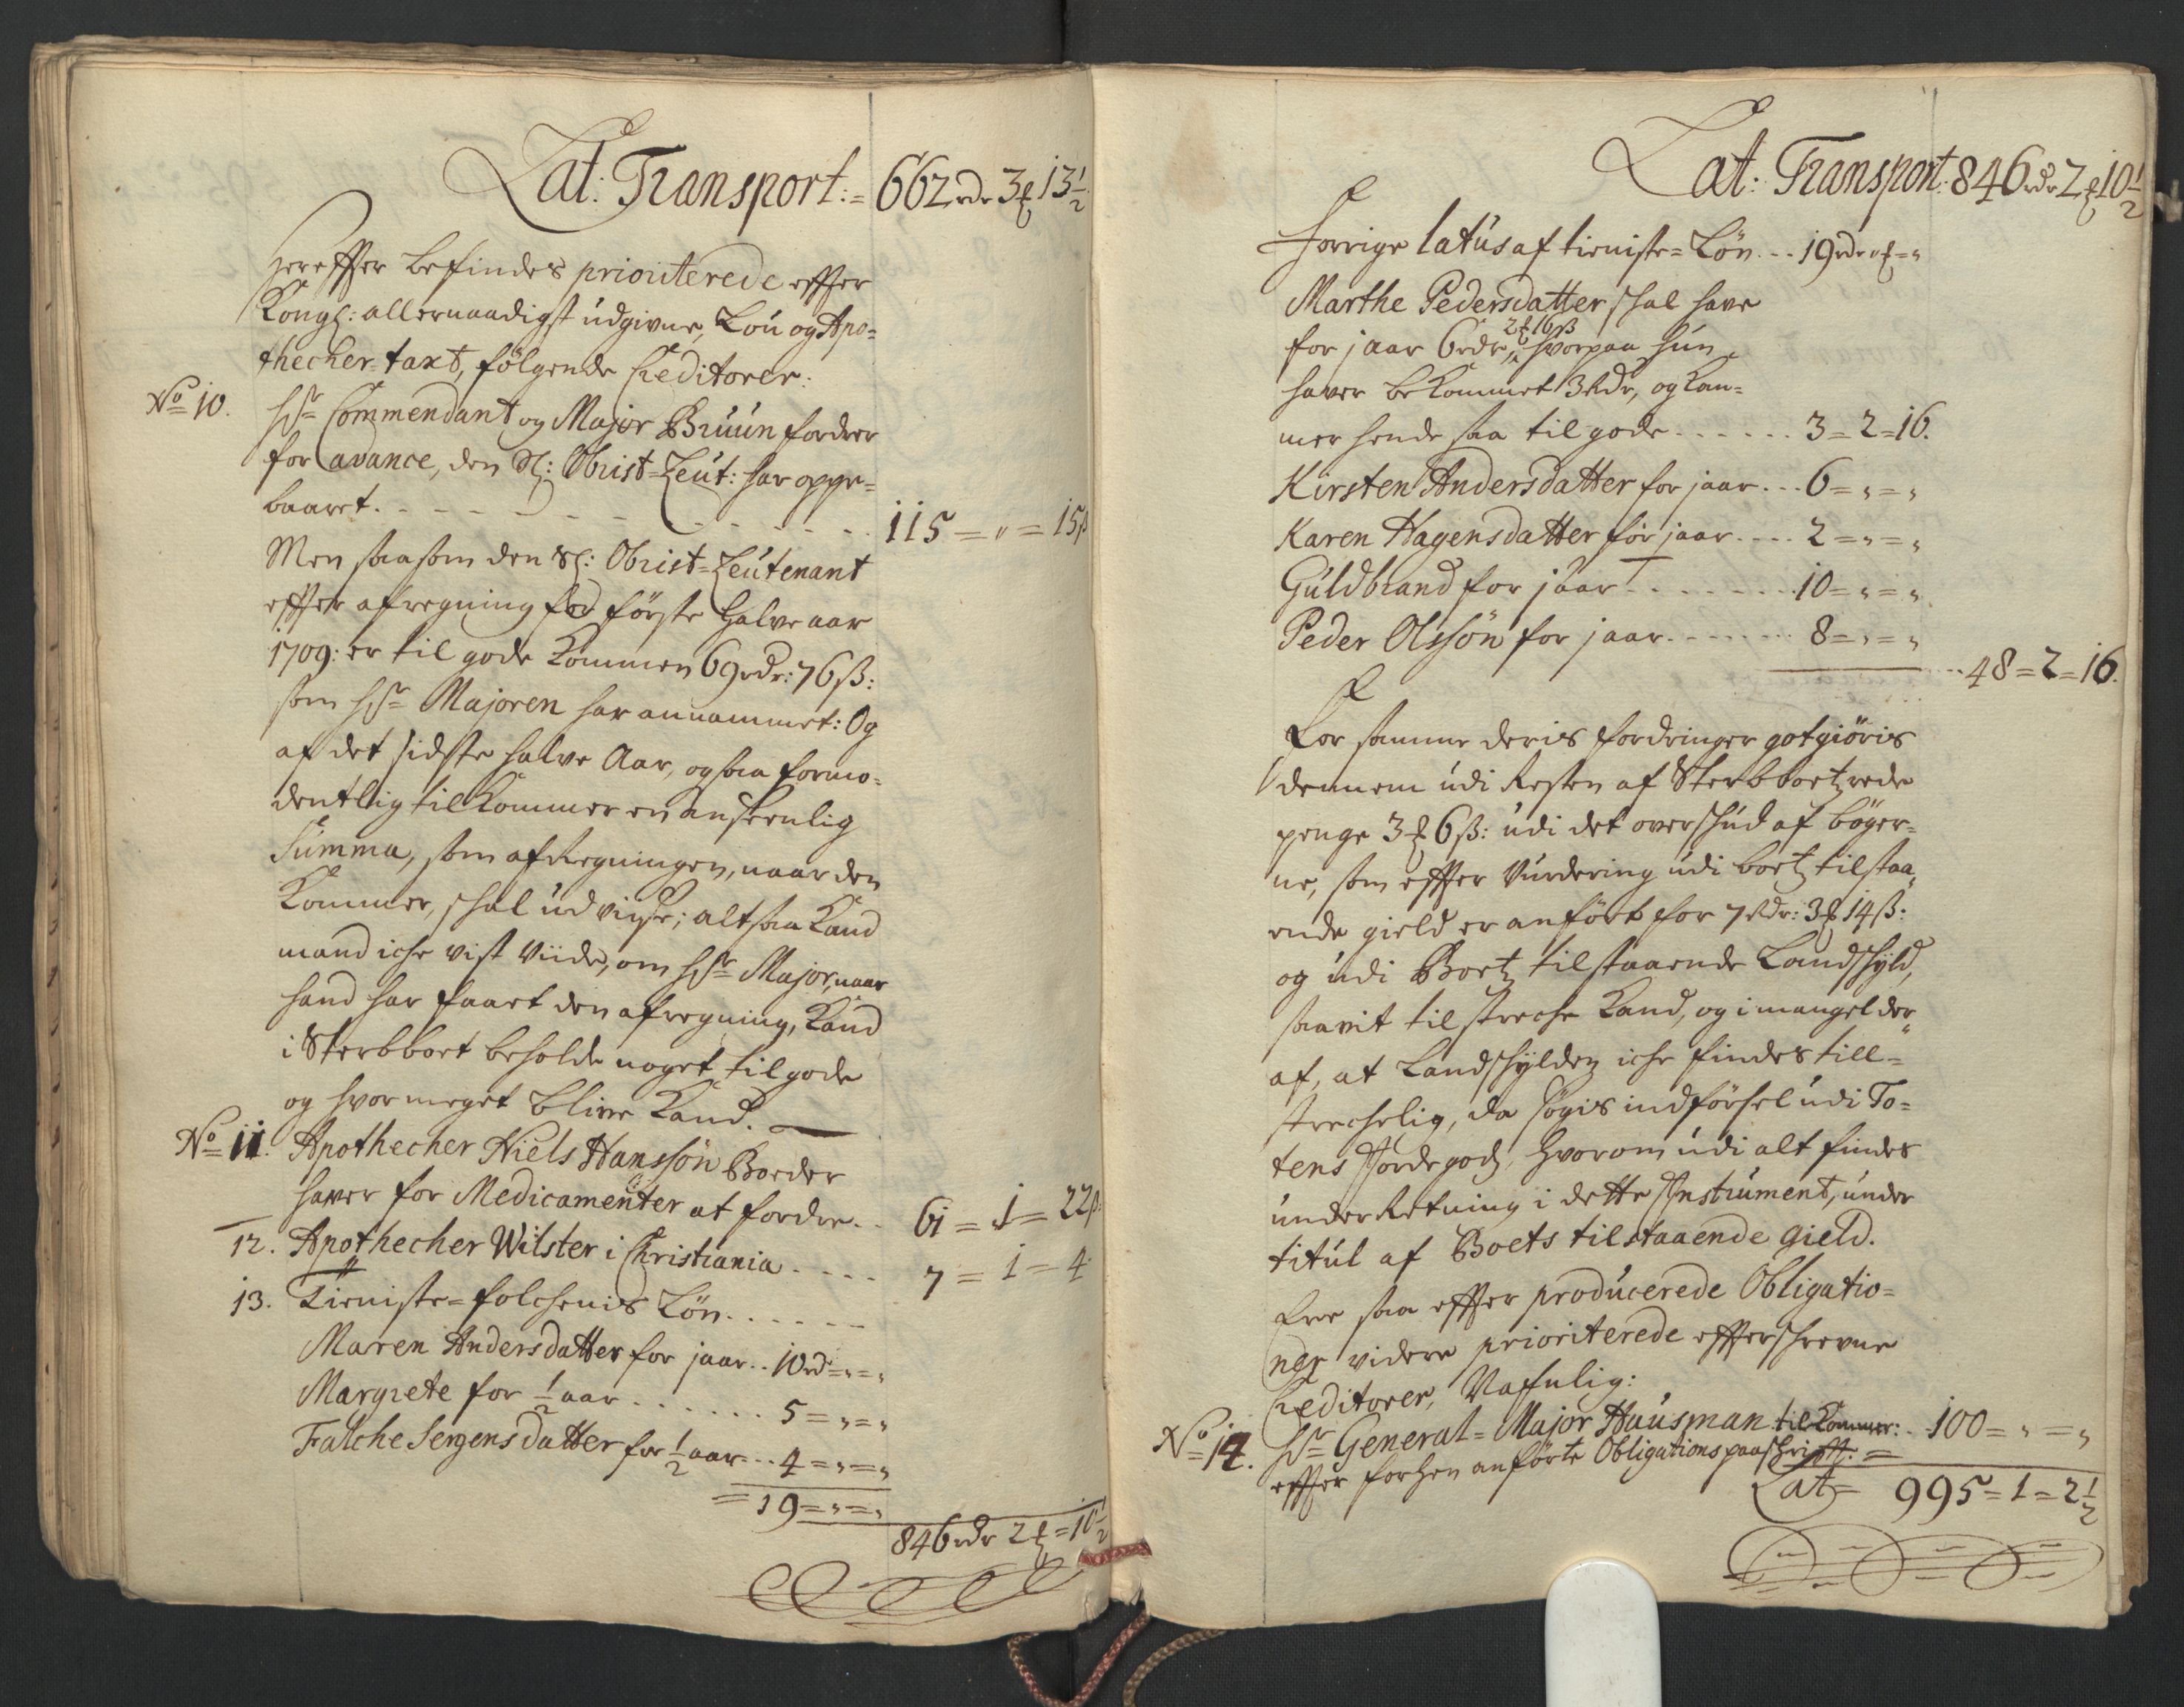 Lat: Transport:= 662 rdr 3 ₰ 13½
Hereffter befindes prioriterede effter
Kongl: allernaadigst udgivne, Lou og Apo=
thecher-taxt, følgende Creditorer:
No 10. Hr Commendant og Major Bruun fordrer
for avance, den Sl: Obrist=Leut: har oppe=
baaret. . . . . . . . 115 = „ = 15ß
Men saasom den Sl: Obrist=Leutenant
effter afregning for første halve aar
1709: er til gode kommen 69 rdr: 76ß:
som Hr Majoren har annammet: Og
af det sidste halve Aar, ogsaa formo=
dentlig tilkommer en anseenlig
Summa, som afregningen, naar den
kommer, schal udviise; altsaa kand
mand iche vist viide, om Hr Major, naar
hand har faaet den afregning, kand
i Sterbboet beholde noget til gode
og hvor meget blive kand.
No 11. Apothecher Niels Hanssøn Boeder
haver for Medicamenter at fordre. . 61 = 1 = 22ß
12. Apothecher Wilster i Christiania . . . . 7 = 1 = 4
13. Tieniste=folchenis Løn. . . . . .
Maren Andersdatter for jaar . . 10rd = „ = „
Margrete for ½ aar . . . . . . 5 = „ = „
Falche Jergensdatter for ½ aar . . . 4 = „ = „
= 19 = „ = „
846 rdr 2 ₰ = 10½
Lat: Transport: 846 rdr 2 ₰ 10½
Forrige latus af tieniste=Løn . . . 19 rdr „ ₰ = „
Marthe Pedersdatter schal have
for jaar 6 rdr, 2 ₰ 16ß hvorpaa hun
haver bekommet 3 Rdr, og kom=
mer hende saa til gode . . . . . . 3 = 2 = 16.
Kirsten Andersdatter for jaar . . . 6 = „ = „
Karen Hagensdatter for jaar . . . . 2 = „ = „
Guldbrand for jaar . . . . . . . 10 = „ = „
Peder Olssøn for jaar . . . . . . . 8 = „ = „
. . . 48 = 2 = 16.
For samme deris fordringer gotgiøris
dennem udi Resten af Sterbboetz rede
penge 3 ₰ 6ß: udi det overschud af bøger=
ne, som effter Vurdering udi boetz tilstaa=
ende gield er anført for 7 Rdr: 3 ₰ 14ß:
og udi Boetz tilstaaende Landschyld,
saavit tilstreche kand, og i mangel der=
af, at Landschylden iche findes till=
strechelig, da søgis indførsel udi To=
tens Jordegodz, hvorom udi alt findes
underretning i dette Instrument, under
titul af Boets tilstaaende Gield.
Ere saa effter producerede Obligatio=
ner videre prioriterede effterschrevne
Creditorer, Nafnlig:
No 14. Hr General=Major Hausman tilkommer: . . 100 = „ = „
effter forhen anførte Obligations paaschrifft. =
Lat = 995 = 1 = 2½